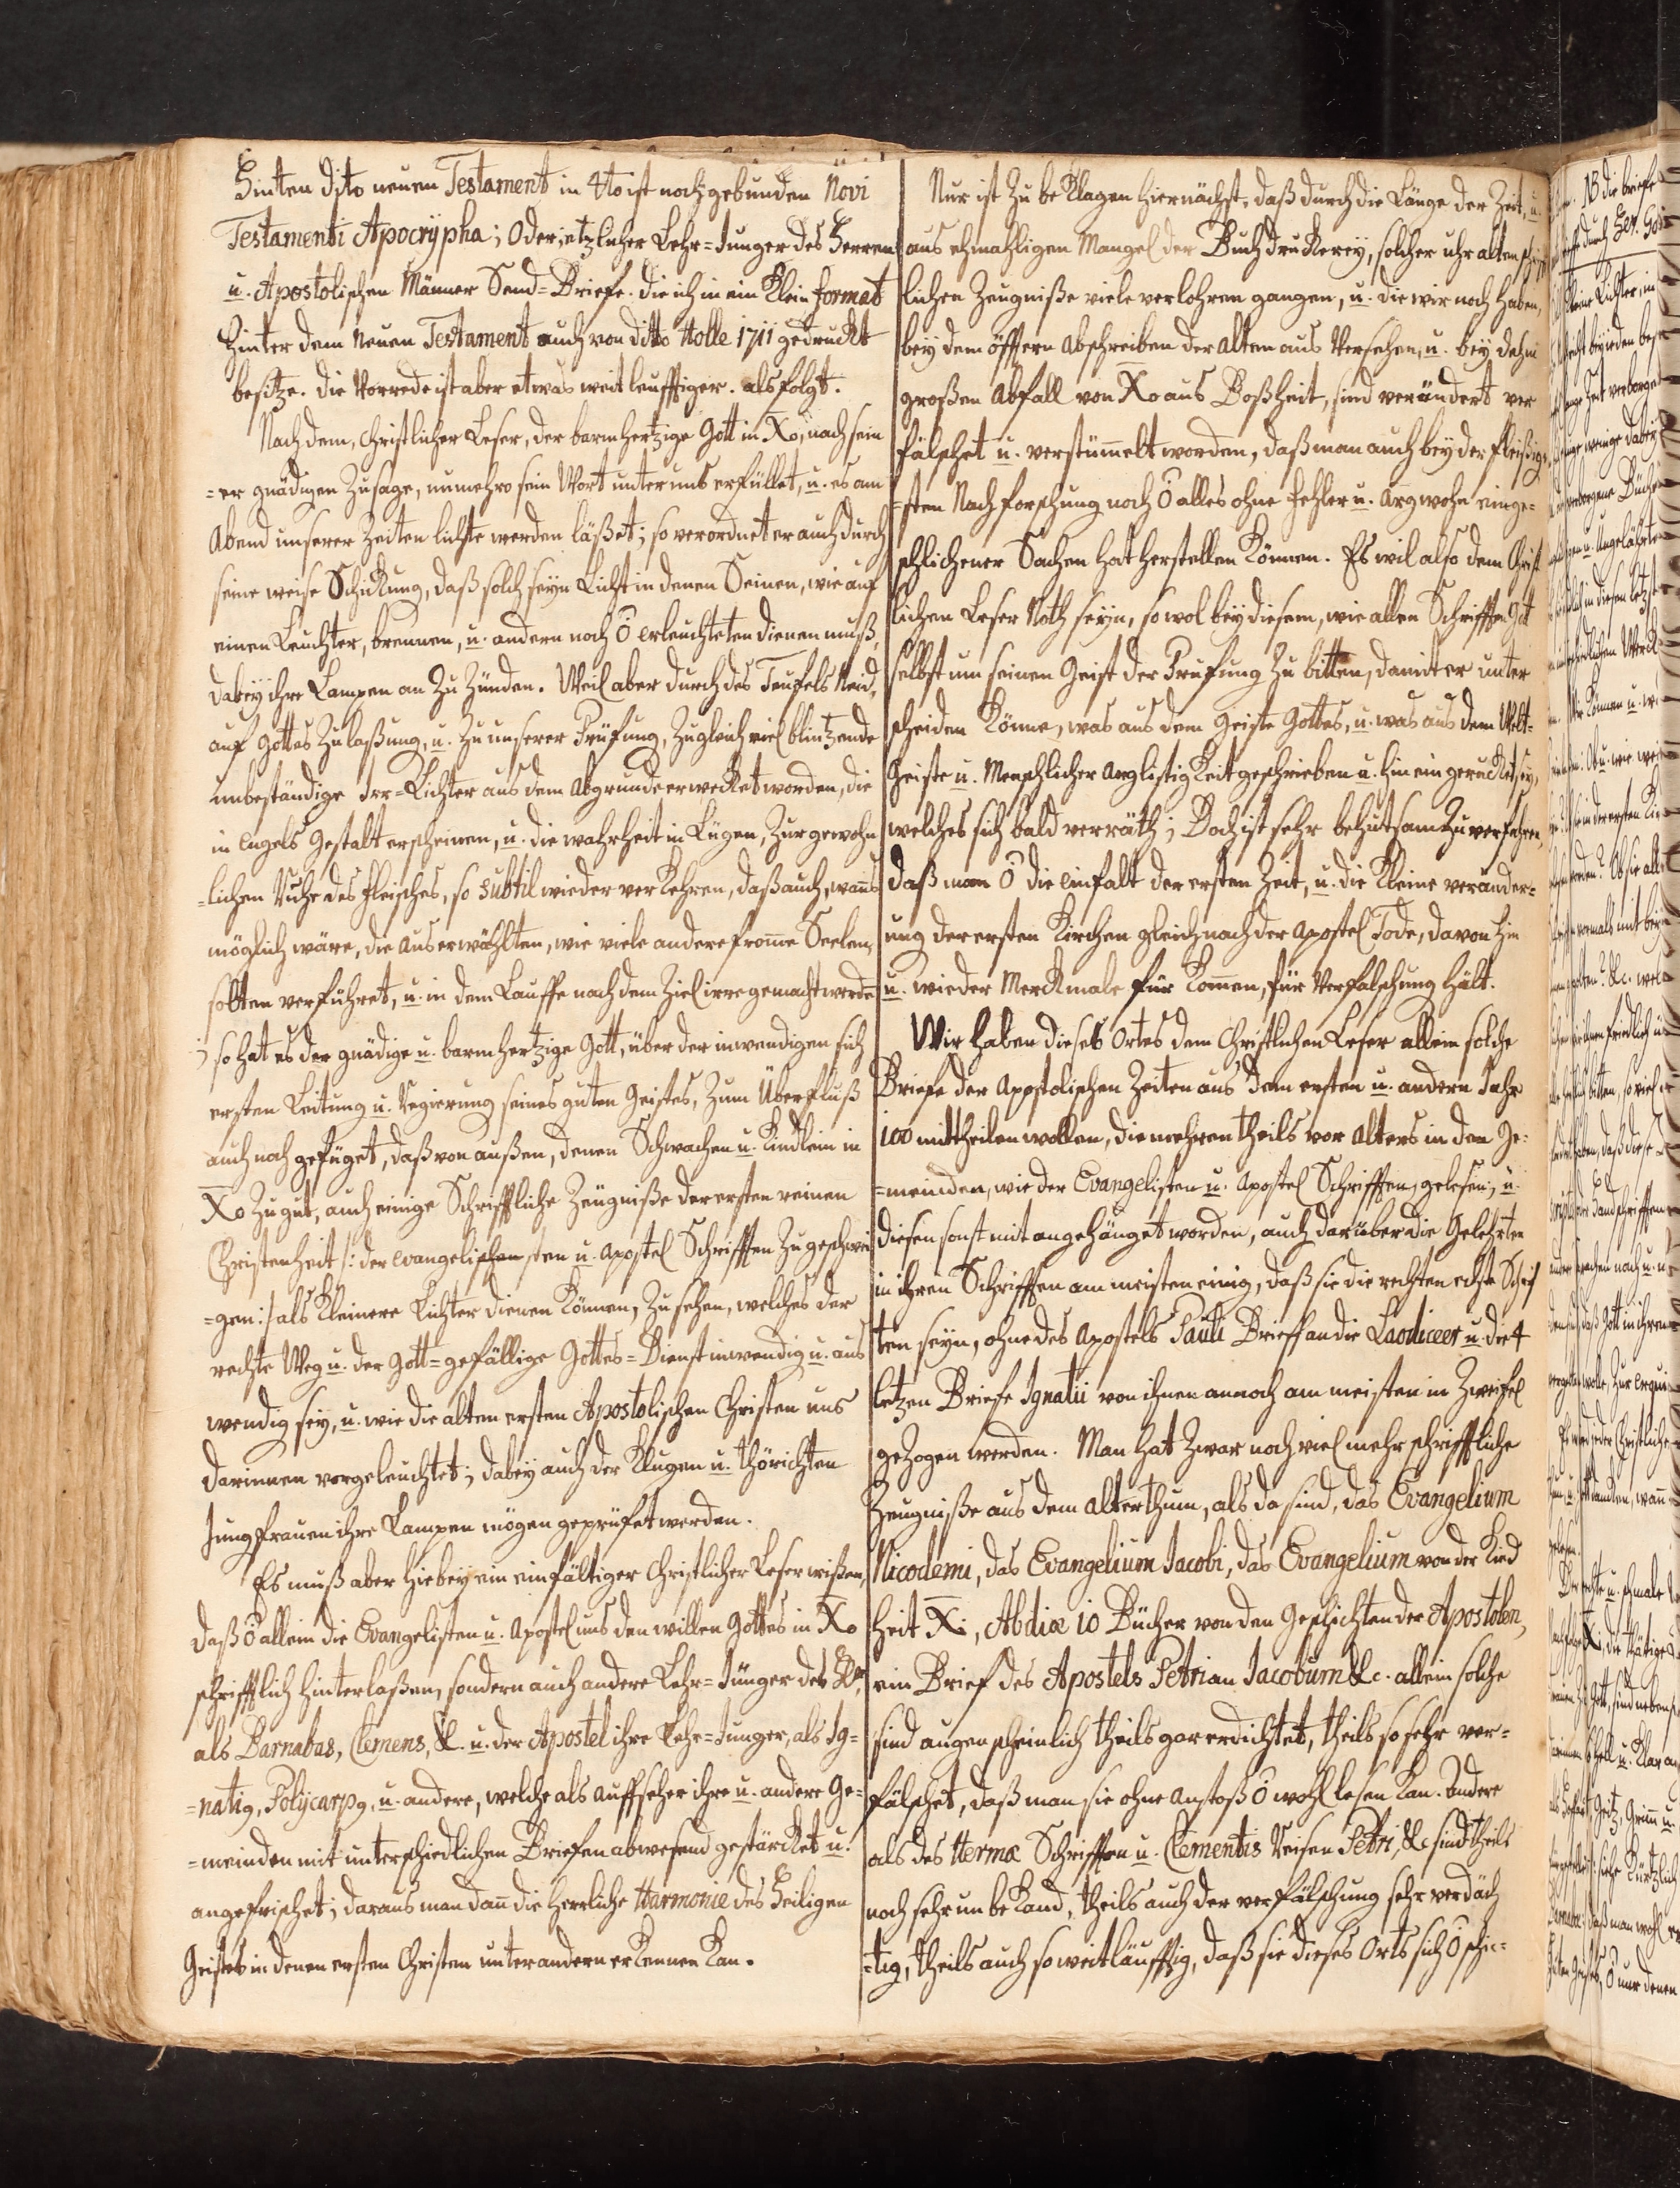 Hinten dito neuen Testament in 4to ist noch gebunden Novi
Testamenti Apocrypha; Oder, etzlicher Lehr=Junger des Herren
u. Apostolischen Männer Send=Briefe. die ich in ein Klein format
hinter dem Neuen Testament auch von ditto Holle 1711 gedruckt
besitze. die Vorrede ist aber etwas weitleufftiger. als folgt.
Nach dem, Christlicher Leser, der barmhertzige Gott in Xo, nach sein
=er gnädigen Zusage, nunmehro sein Wort unter uns erfüllet, u. es am
Abend unserer Zeiten lichte werden läßet; so verordnet er auch durch
seine weise Schickung, daß solch seyn Licht in denen Seinen, wie auf
einen Leuchter, brennen, u. andern noch Ö erleuchteten dienen muß,
dabey ihre Lampen an Zu Zünden. Weil aber durch des Teufels Neid,
auf Gottes Zulaßung, u. Zu unserer Prüfung, Zugleich viel blintzende
unbeständige Irr=Lichter aus dem Abgrunde erwecket worden, die
in Engels Gestalt erscheinen, u. die wahrheit in Lügen, Zur gewohn
=lichen Ruhe des fleisches, so subtil wieder verkehren, daß auch, wanns
möglich wäre, die auserwählten, wie viele andere fromme Seelen,
solten verführet, u. in dem Lauffe nach dem Ziel irre gemacht werden
; so hat es der gnädige u. barmhertzige Gott, über der inwendigen sich
ersten Leitung u. Regierung seines guten Geistes, Zum Überfluß
auch noch gefüget, daß von außen, denen Schwachen u. Kindlein in
Xo Zu gut, auch einige Schrifftliche Zeugniße der ersten reinen
Christenheit /: der evangelischen sten u. Apostel Schrifften Zu geschwei
=gen:/ als Kleinere Lichter dienen Können, Zu sehen, welches der
rechte Weg u. der Gott=gefällige Gottes=Dienst inwendig u. aus
wendig sey, u. wie die alten ersten Apostolischen Christen uns
darinnen vorgeleuchtet; dabey auch der Klugen u. thörichten
Jungfrauen ihre Lampen mögen geprüfet werden.
Es muß aber hiebey ein einfältiger Christlicher Leser wißen,
daß Ö allein die Evangelisten u. Apostel uns den willen Gottes in Xo
schrifftlich hinterlaßen, sondern auch andere Lehr=Jünger des Hr.
als Barnabas, Clemens, &. u. der Apostel ihre Lehr=Junger, als Ig=
=natig, Polycarpg, u. andere, welche als Auffseher ihre u. andere Ge=
=meinden mit unterschiedlichen Briefen abwesend gestärcket u.
angefrischet; daraus man dann die herrliche Harmonie des Heiligen
Geistes in denen ersten Christen unter andern erkennen Kan.
Nur ist Zu beklagen hiernächst, daß durch die Länge der Zeit, u.
aus ehmahligen Mangel der Buchdruckerey, solcher uhralten schrifft
lichen Zeugniße viele verlohren gangen, u. die wir noch haben,
bey dem öfftern Abschreiben der Alten aus Versehen, u. bey dehm
großen Abfall von Xo aus Boßheit, sind verändert ver
fälschet u. verstümmelt worden, daß man auch bey der fleißig
=sten Nachforschung noch Ö alles ohne Fehler u. Argwohn einge=
schlichener Sachen hat herstellen Können. Es wil also dem Christ
lichen Leser Noth seyn, so wol bey diesem, wie allen Schrifften Gtt
selbst um seinen Geist der Prüfung Zu bitten, damit er unter
scheiden Könne, was aus dem Geiste Gottes, u. was aus dem Welt=
Geiste u. Menschlicher arglistigkeit geschrieben u. hinein gerucket sey,
welches sich bald verräth; Doch ist sehr behutsam Zu verfahren,
daß man Ö die einfalt der ersten Zeit, u. die Kleine veränder=
ung der ersten Kirchen gleich nach der Apostel Tode, davon hin
u. wieder Merckmale für Kommen, für Verfälschung hält.
Wir haben dieses Ortes dem Christlichen Leser allein solche
Briefe der Apostolischen Zeiten aus dem ersten u. andern Jahr
100 mittheilen wollen, die mehrentheils vor Alters in den Ge=
=meinden, wie der Evangelisten u. Apostel Schrifften, gelesen, u.
diesen sonst mit angehänget worden, auch darüber die Gelehrten
in ihren Schrifften am meisten einig, daß sie die rechten echte Schrif
ten seyn, ohne des Apostels Pauli Brieff an die Laodiceer u. die 4
letzen Briefe Ignatii von ihnen annoch am meisten in Zweifel
geZogen werden. Man hat Zwar noch viel mehr schrifftliche
Zeugniße aus dem Alterthum, als da sind, das Evangelium
Nicodemi, das Evangelium Jacobi, das Evangelium von der Kind
heit Xi, Abdiæ 10 Bücher von den Geschichten der Apostolen,
ein Brief des Apostels Petri an Jacobum &c. allein solche
sind augenscheinlich theils gar erdichtet, theils so sehr ver=
fälschet, daß man sie ohne Anstoß Ö wohl lesen Kan. Andere
als des Hermæ Schrifften u. Clementis Reisen Petri, &c sind theils
noch sehr unbekand, theils auch der verfälschung sehr verdäch
=tig, theils auch so weitläufftig, daß sie dieses Orts sich Ö schi=